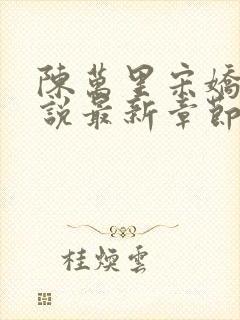 陳萬里宋嬌
說最新章節
桂煥雲